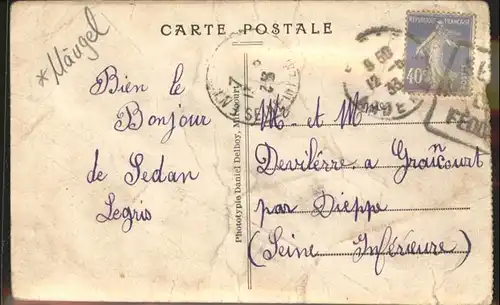 CARTE POSTALE
*Mängel
Bien le
Bonjour
de Sedan
Legris
Phototypie Daniel Delboy, Mirecourt
RÉPUBLIQUE FRANÇAISE
40c
M. et Mme
Devilérre a Graincourt
par Dieppe
(Seine Inférieure)